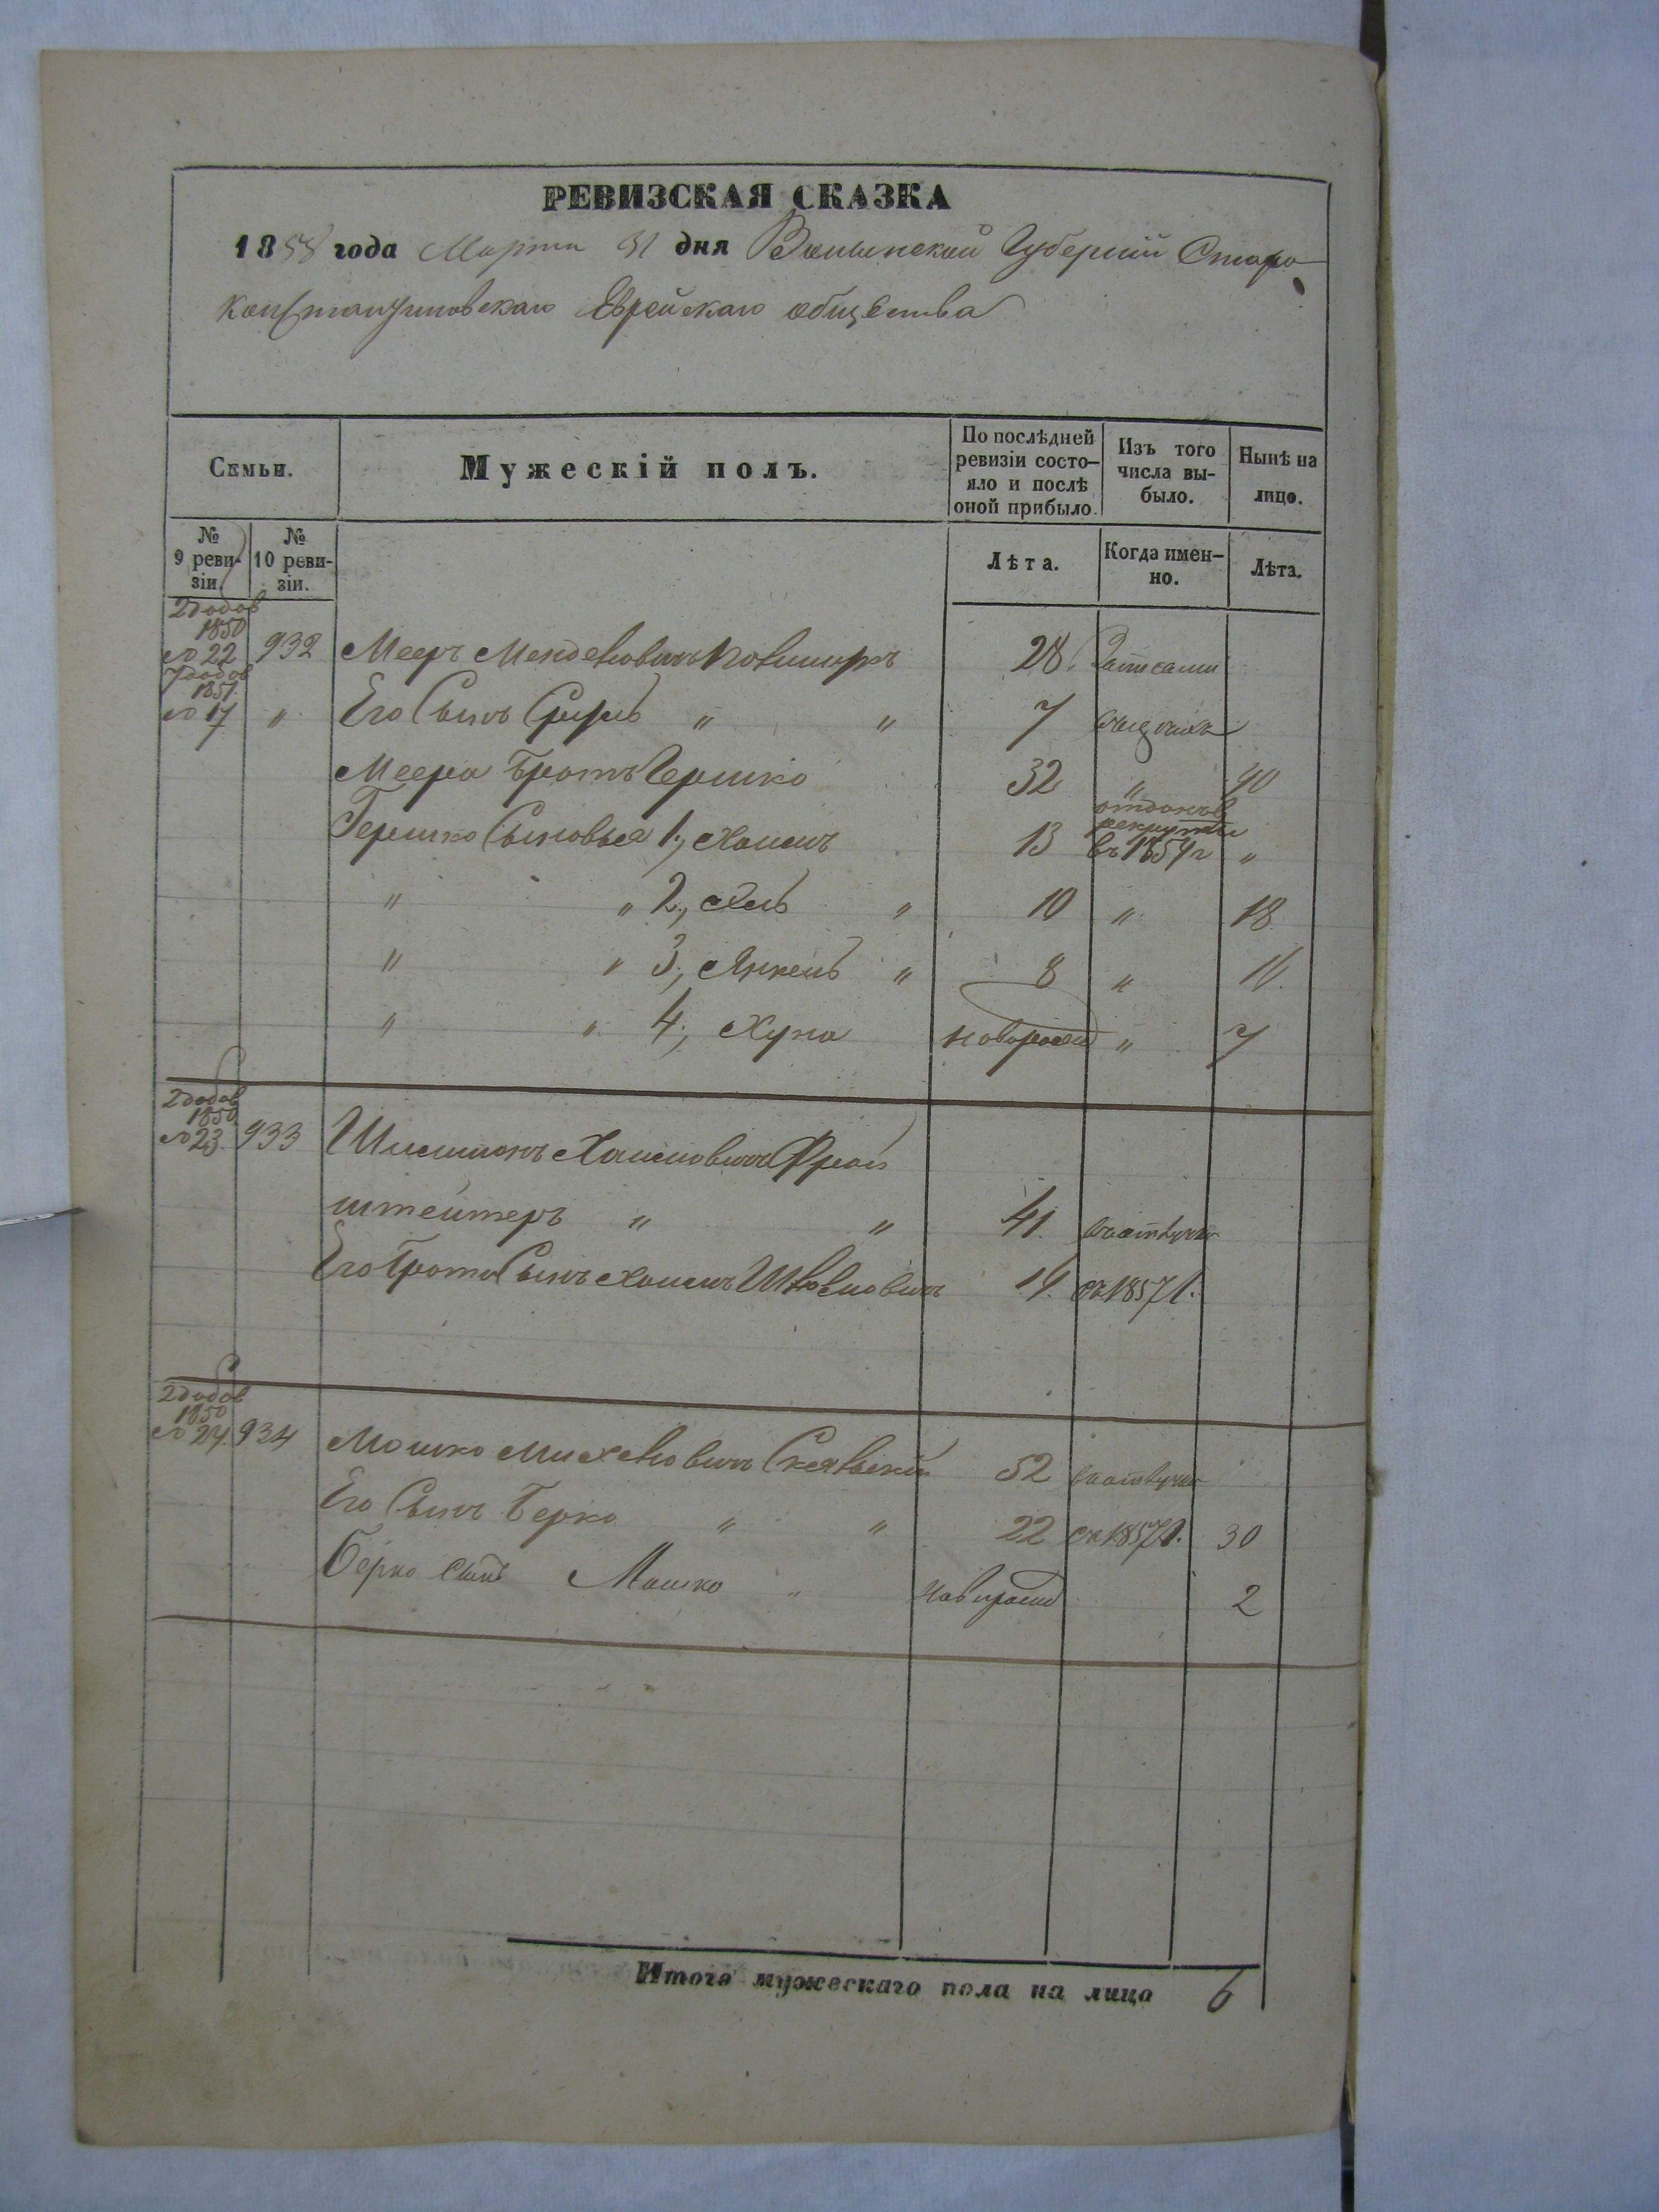 РЕВИЗСКАЯ СКАЗКА
1858 года Марта 31 дня Волынской Губернии Старо
константиновскаго Еврейскаго общества
Семьи.
Мужескій полъ.
По послѣдней ревизіи состояло и послѣ оной прибыло.
Изъ того числа выбыло.
Нынѣ на лицо.
№ 9 ревизіи.
№ 10 ревизіи.
Лѣта.
Когда именно.
Лѣта.
2 додов 1850 № 22 932 Мееръ Менделовичъ 28
7 додов 1851 № 17 " Его Сынъ Сруль " " 7
Меера Братъ Гершко 32 " 40
Гершко Сыновья 1, Хаимъ 13 отданъ в рекруты въ 1854 г "
" " 2, " 10 " 18
" " 3, Янкель " 8 " 16
" " 4, Хуна новорожд " 7
2 додов 1850 № 23 933 Шимшонъ Хаимовичъ Фрай
штетеръ " " 41.
Его Брата Сынъ Хаимъ 19. съ 1857 г.
2 додов 1850 № 24 934 Мошко Михелевичъ 52
Его Сынъ Берко " " 22 съ 1857 г. 30
Берко сынъ Мошко " новорожд 2
Итого мужескаго пола на лицо 6